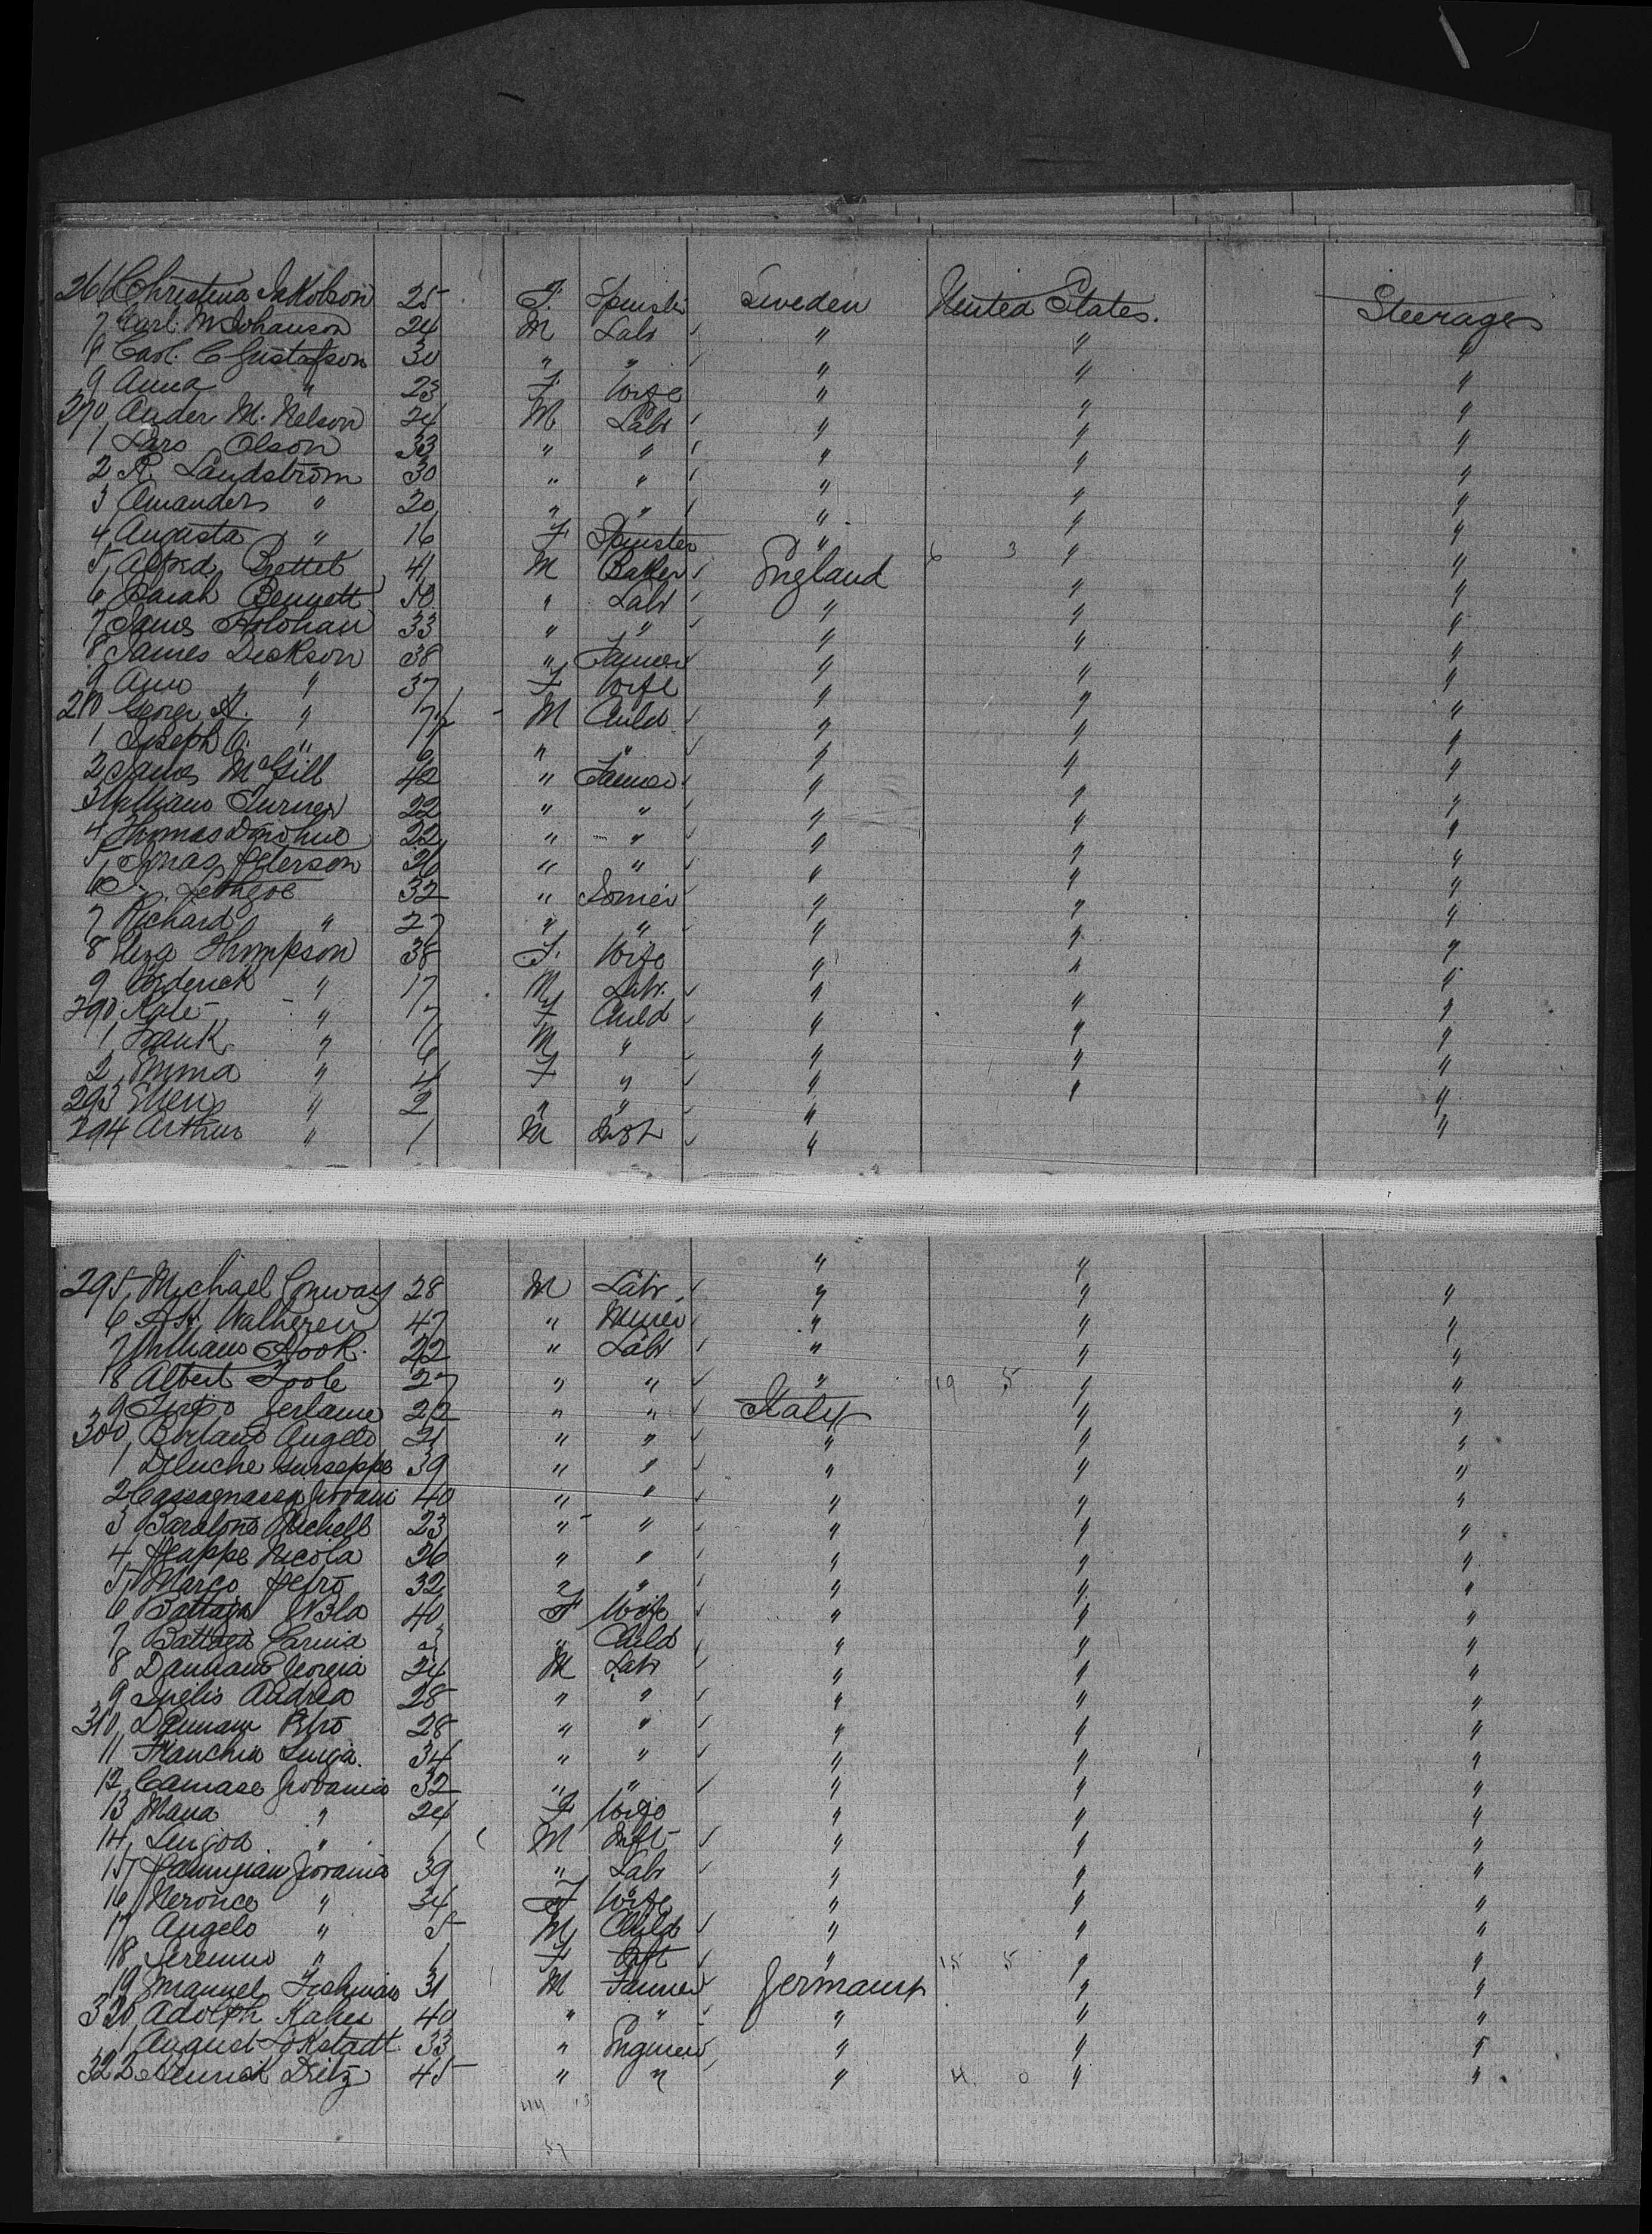 266 Christina Jakobson 25 F. Spinstr Sweden United States. Steerage
7 Carl. M Johanson 24 M Labr " " "
8 Carl. C Gustafson 30 " " " " "
9 Anna " 23 F. Wife " " "
270 Ander M. Nelson 24 M Labr " " "
1 Lars Olson 33 " " " " "
2 R. Landstrom 30 " " " " "
3 Amanders " 20 " " " " "
4 Augusta " 16 F Spinster " 6 3 " "
5 Alfred 41 M Baker England " "
6 Bennett 50 " Labr " " "
7 James Holohan 33 " " " " "
8 James Dickson 38 " Farmer " " "
9 Ann " 37 F Wife " " "
280 George A. " M Child " " "
1 Joseph O. " 9 " " " " "
2 James McGill 42 " Farmer " " "
3 William Turner 22 " " " " "
4 Thomas Donohue 22 " " " " "
5 Jonas Peterson 26 " " " " "
6 Lethgoe 32 " " " "
7 Richard " 27 " " " " "
8 Eliza Thompson 38 F. Wife " " "
9 " 17 M Labr. " " "
290 Kate " F Child " " "
1 Frank " 6 M " " " "
2 Emma " 4 F " " " "
293 Ellen " 2 " " " "
294 Arthur " 1 M " "
" "
295 Michael Conway 28 M Labr " " "
6 47 " Miner " " "
7 William Hook. 22 " Labr " " "
8 Albert Toole 27 " " " 19 5 " "
9 22 " " Italy " "
300 Angelo 21 " " " " "
1 Deluche Giurseppe 39 " " " " "
2 Giovani 40 " " " " "
3 Michell 23 " " " " "
4 Nicola 26 " " " " "
5 Marco Petro 32 " " " " "
6 Battaga 40 F Wife " " "
7 Battaga 3 " Child " " "
8 Georgia 24 M Labr " " "
9 Andrea 28 " " " " "
310 Petro 28 " " " " "
11 Franchia Luiga. 34 " " " " "
12 Camase Giovania 32 " " " " "
13 Maria " 24 F Wife " " "
14 " 1 M Inft " " "
15 Giovania 39 " Labr " " "
16 " 34 F Wife " " "
17 Angelo " 5 M Child " " "
18 " 1 F Inft " 15 5 " "
19 Emanuel Fishman 31 M Farmer Germany " "
320 Adolph 40 " " " " "
1 August Lokstadt 33 " Engineer " " "
322 Dietz 45 " " " 4. 0 " "
44 13
57